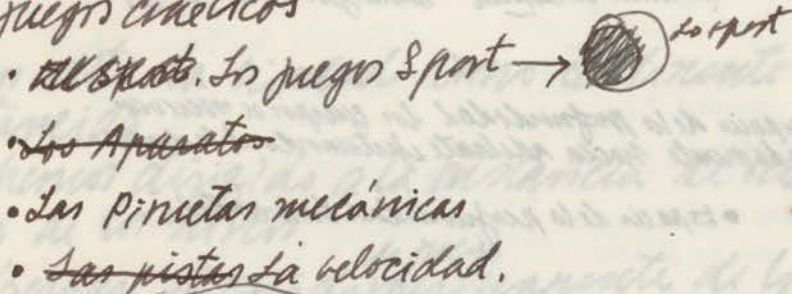 juegos cinéticos
• El Sport. Los juegos Sport → Lo sport
• Los Aparatos
• Las Piruetas mecánicas
• Las pistas La velocidad.